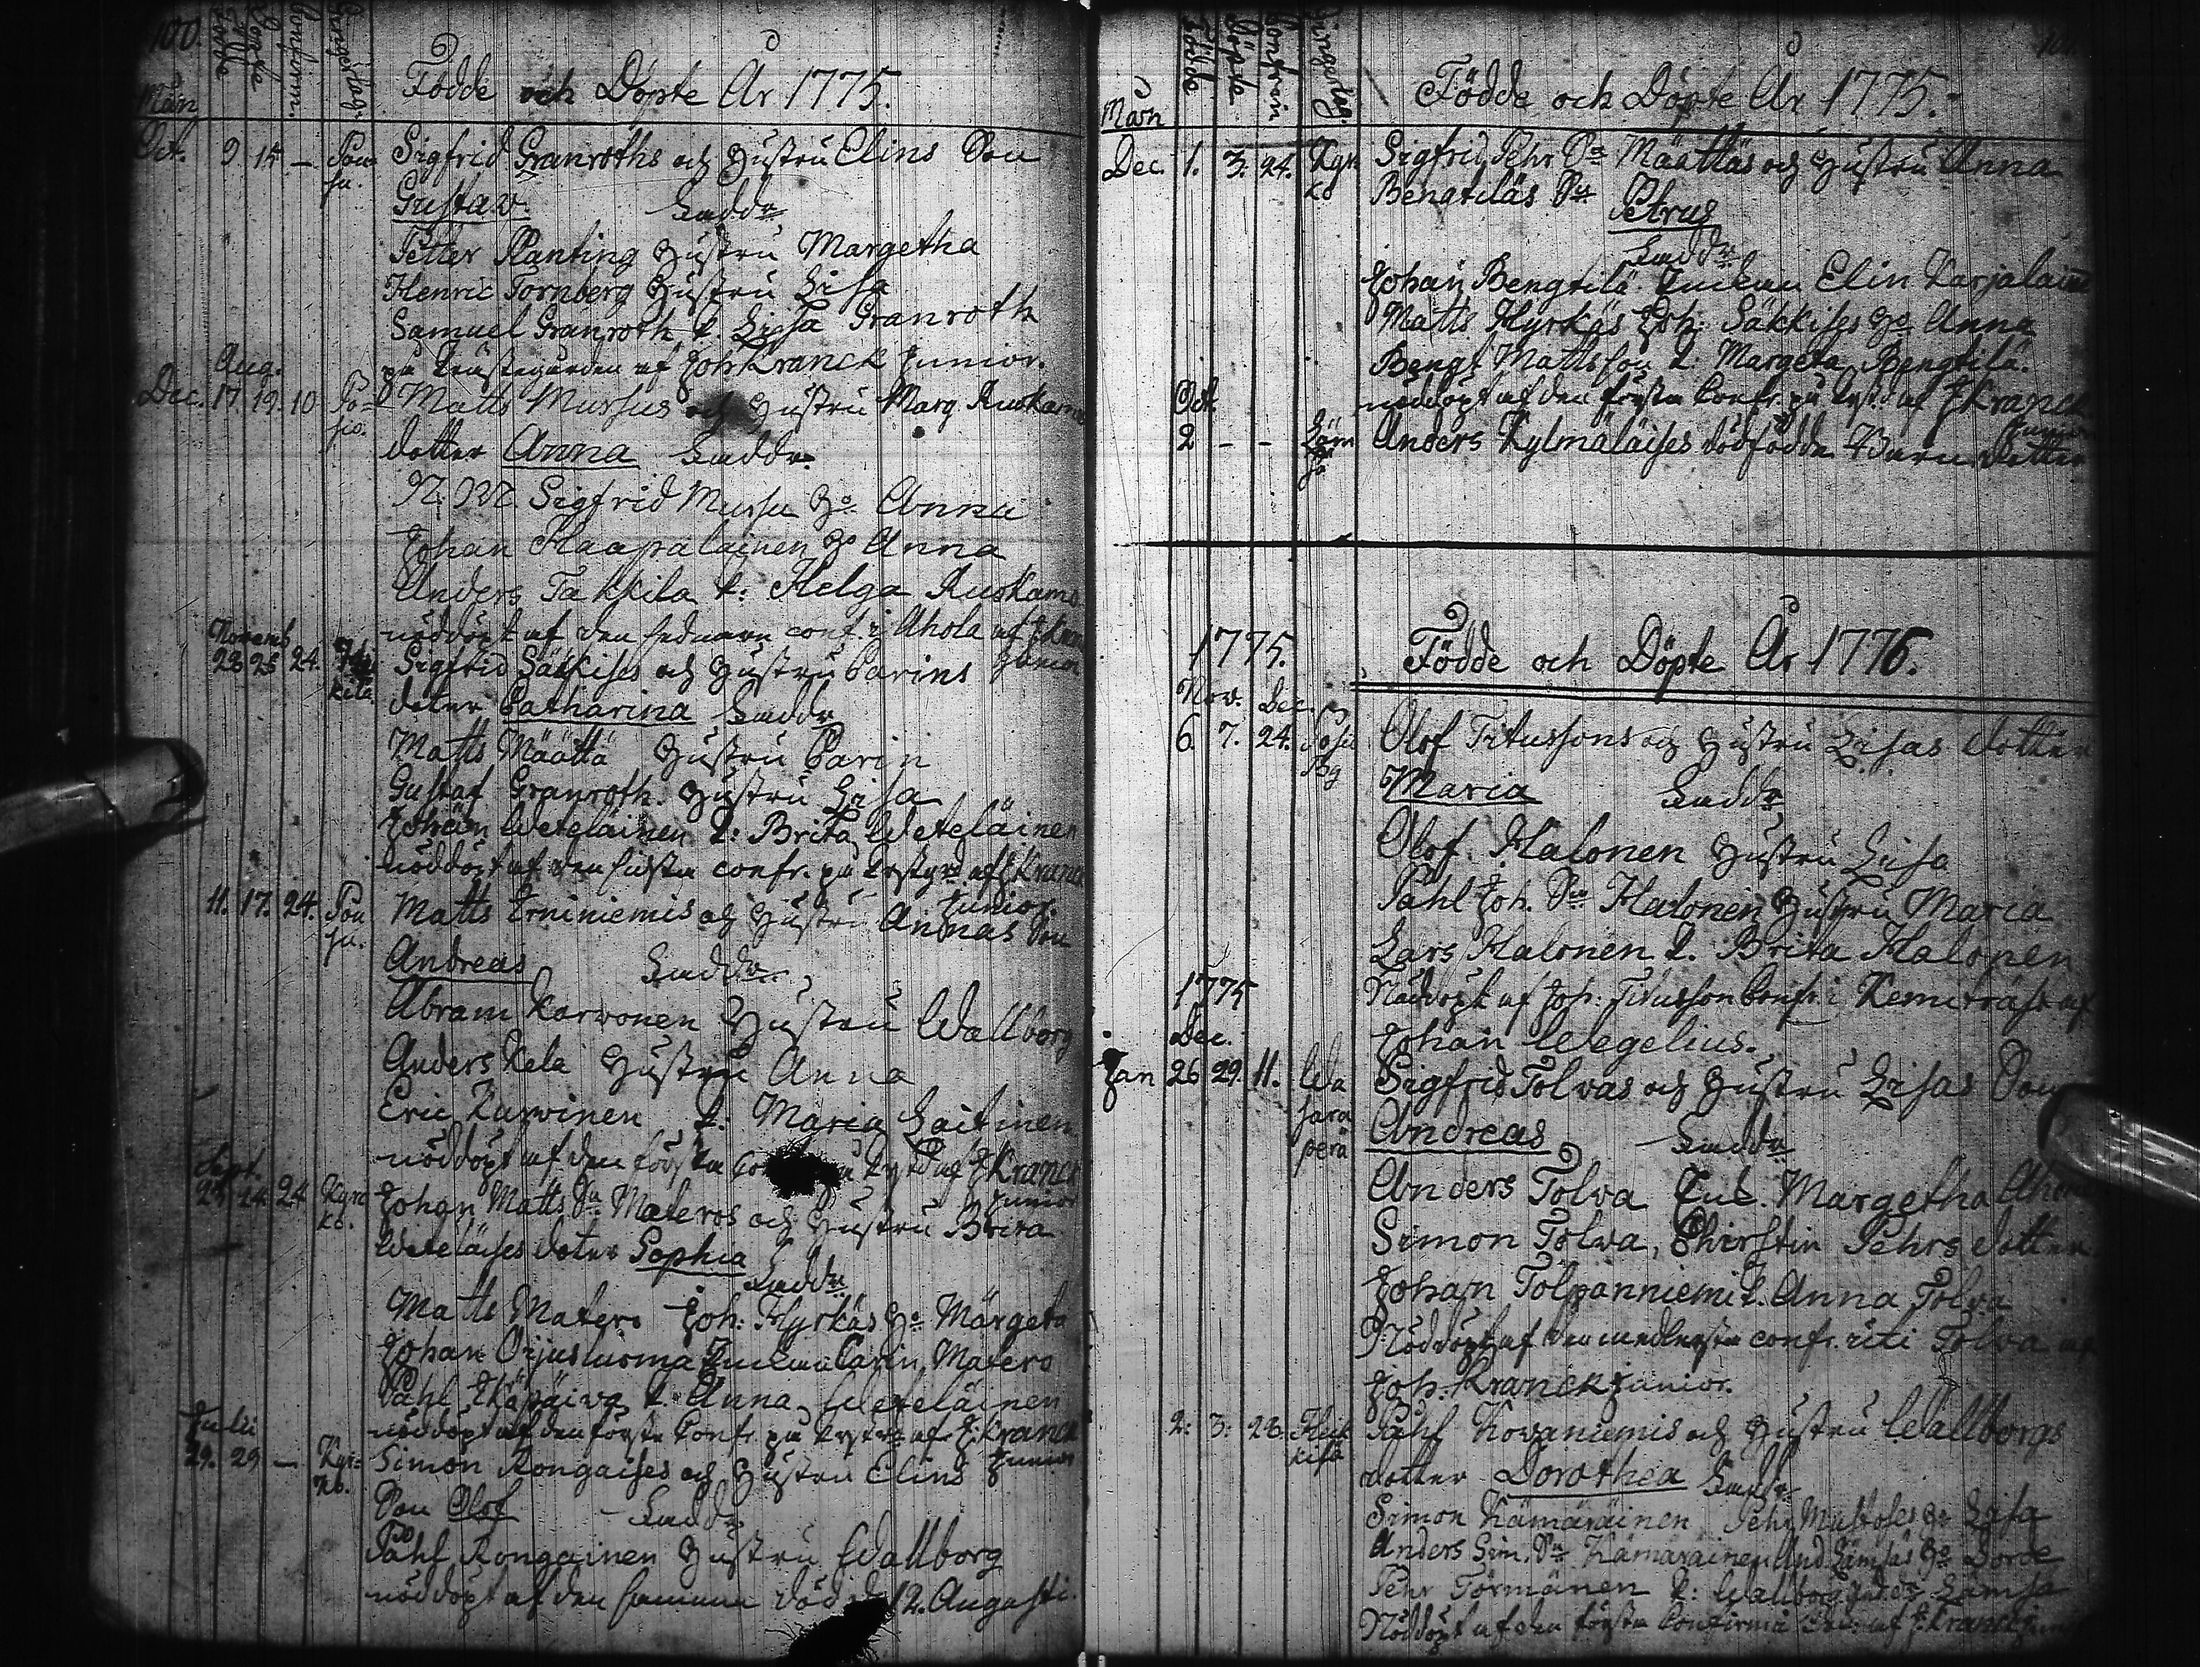 100.
Mån
Födde
Döpte
Confirm.
Byngerlag.
Födde och Döpte År 1775.
Oct. 9 15 — Pou
su. Sigfrid Granroths och Hustru Elins Son
Gustav. Faddr
Petter Planting Hustru Margetha
Henric Tornberg Hustru Lisa
Samuel Granroth p. Lisa Granroth
på Prästegården af Joh Kranck Junior.
Aug.
Dec. 17. 19. 10 Po=
sio. Matts Mursus och Hustru Marg. Ruokamo
dotter Anna Faddr
N: M Sigfrid Mursu Ho Anna
Johan Haapalainen Ho Anna
Anders Takkila p: Helga Ruokamo
nöddöpt af den sednare conf. i Ahola af J Kran
Junior
Novemb
23 25 24. kila. Sigfrid Säkkises och Hustru Carins
doter Catharina Faddr
Matts Määttä Hustru Carin
Gustaf Granroth. Hustru Lisa
Johan Weteläinen p: Brita Weteläinen
nöddöpt af den sidsta confr. på Prstgrd af J Kranck
Junior.
11. 17. 24. Pou
su. Matts Erniniemis och Hustru Annas Son
Andreas Faddr
Abram Karvonen Hustru Wallborg
Anders Kela Hustru Anna
Eric Karvinen p. Maria Laitinen
nöddöpt af den första af J Kranck
Junior
Sept.
23 24 24 Kyrc
ko. Johan Matts Sn Materos och Hustru Brita
Weteläises doter Sophia
Faddr
Matts Matero Joh: Hyrkäs Ho Margeta
Johan Orjusluoma Enkan Carin Matero
Påhl p. Anna Weteläinen
nöddöpt af den förste Confr. på af J: Kranck
Junior
Julii
29. 29 — Kyr=
ko. Simon Rongaises och Hustru Elins
Son Olof Faddr
Påhl Rongainen Hustru Wallborg
nöddöpt af den samma död d 12. Augusti.
Mån
Födde
Döpte
Confirm
Byngerlag.
Födde och Döpte År 1775.
Dec. 1. 3. 24. Kyr
ko Sigfrid Pehr Sn Määttäs och Hustru Anna
Bengtiläs Sn Petrus
Faddr
Johan Bengtilä Enkan Elin Karjalain
Matts Hyrkäs Joh: Säkkises Ho Anna
Bengt Mattsson p: Margeta Bengtilä.
nöddöpt af den första Confr. på af J Kranck
Junior
Oct.
2 – – Anders Kylmäläises dödfödde Barn dotter
1775.
Födde och Döpte År 1776.
Nov. Dec.
6. 7. 24. Posio
By Olof Titussons och Hustru Lisas dotter
Maria Faddr
Olof Halonen Hustru Lisa
Påhl Joh. Sn Halonen Hustru Maria
Lars Halonen p. Brita Halonen
Nöddöpt af Joh: Titusson Confr. i Kemiträsk af
Johan Wegelius.
1775
Dec.
Jan 26 29. 11. Wa
sara
perä Sigfrid Tolvas och Hustru Lisas Son
Andreas Faddr
Anders Tolva Enk. Margetha
Simon Tolva, Chirstin Pehrs dotter
Johan Tolpanniemi p. Anna Tolva
Nöddöpt af den medlersta confr. uti Tolva af
Joh: Kranck Junior.
2: 3: 28 kisa Påhl Kovaniemis och Hustru Wallborgs
dotter Dorothea Faddr
Simon Kämäräinen Pehr Mustoses Ho Lisa
Anders Sim. Sn Kämäräinen And Lämsäs Ho Dorde
Pehr Törmänen p: Wallborg Lämsä
Nöddöpt af den första Confirmer. af J. Kranck Jun